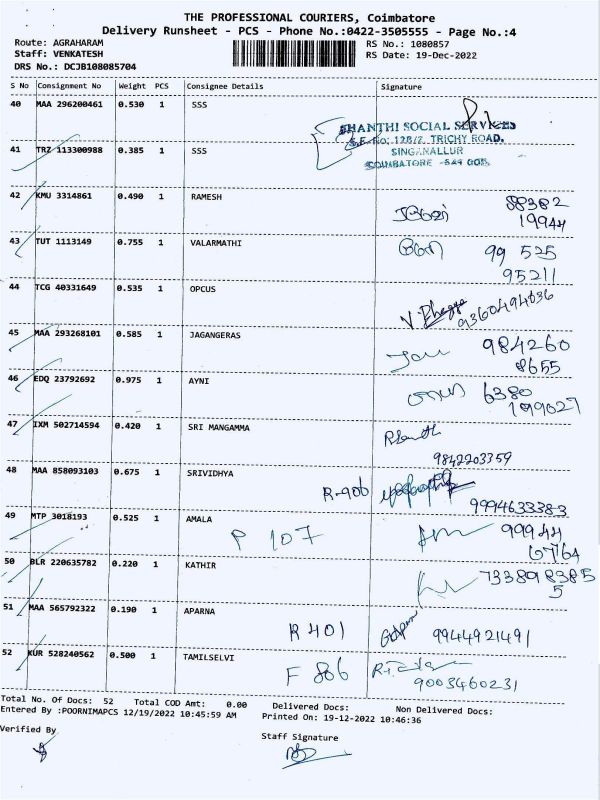 THE PROFESSIONAL COURIERS, Coimbatore
Delivery Runsheet - PCS - Phone No.:0422-3505555 - Page No.:4
Route: AGRAHARAM RS No.: 1080857
Staff: VENKATESH RS Date: 19-Dec-2022
DRS No.: DCJB108085704
S No Consignment No Weight PCS Consignee Details Signature
40 MAA 296200461 0.530 1 SSS
SHANTHI SOCIAL SERVICES
S.F. No: 128/2, TRICHY ROAD,
41 TRZ 113300988 0.385 1 SSS
SINGANALLUR
COIMBATORE - 641 005.
42 KMU 3314861 0.490 1 RAMESH 88382
19944
43 TUT 1113149 0.755 1 VALARMATHI 99 525
95211
44 TCG 40331649 0.535 1 OPCUS
9360494636
45 MAA 293268101 0.585 1 JAGANGERAS 984260
8655
46 EDQ 23792692 0.975 1 AYNI 6380
199027
47 IXM 502714594 0.420 1 SRI MANGAMMA
9842203359
48 MAA 858093103 0.675 1 SRIVIDHYA
R-906 9994633383
49 MTP 3018193 0.525 1 AMALA P 107 99944
67164
50 BLR 220635782 0.220 1 KATHIR 7338983855
51 MAA 565792322 0.190 1 APARNA
R 401 9944921491
52 KUR 528240562 0.500 1 TAMILSELVI F 806
9003460231
Total No. Of Docs: 52 Total COD Amt: 0.00 Delivered Docs: Non Delivered Docs:
Entered By :POORNIMAPCS 12/19/2022 10:45:59 AM Printed On: 19-12-2022 10:46:36
Verified By Staff Signature